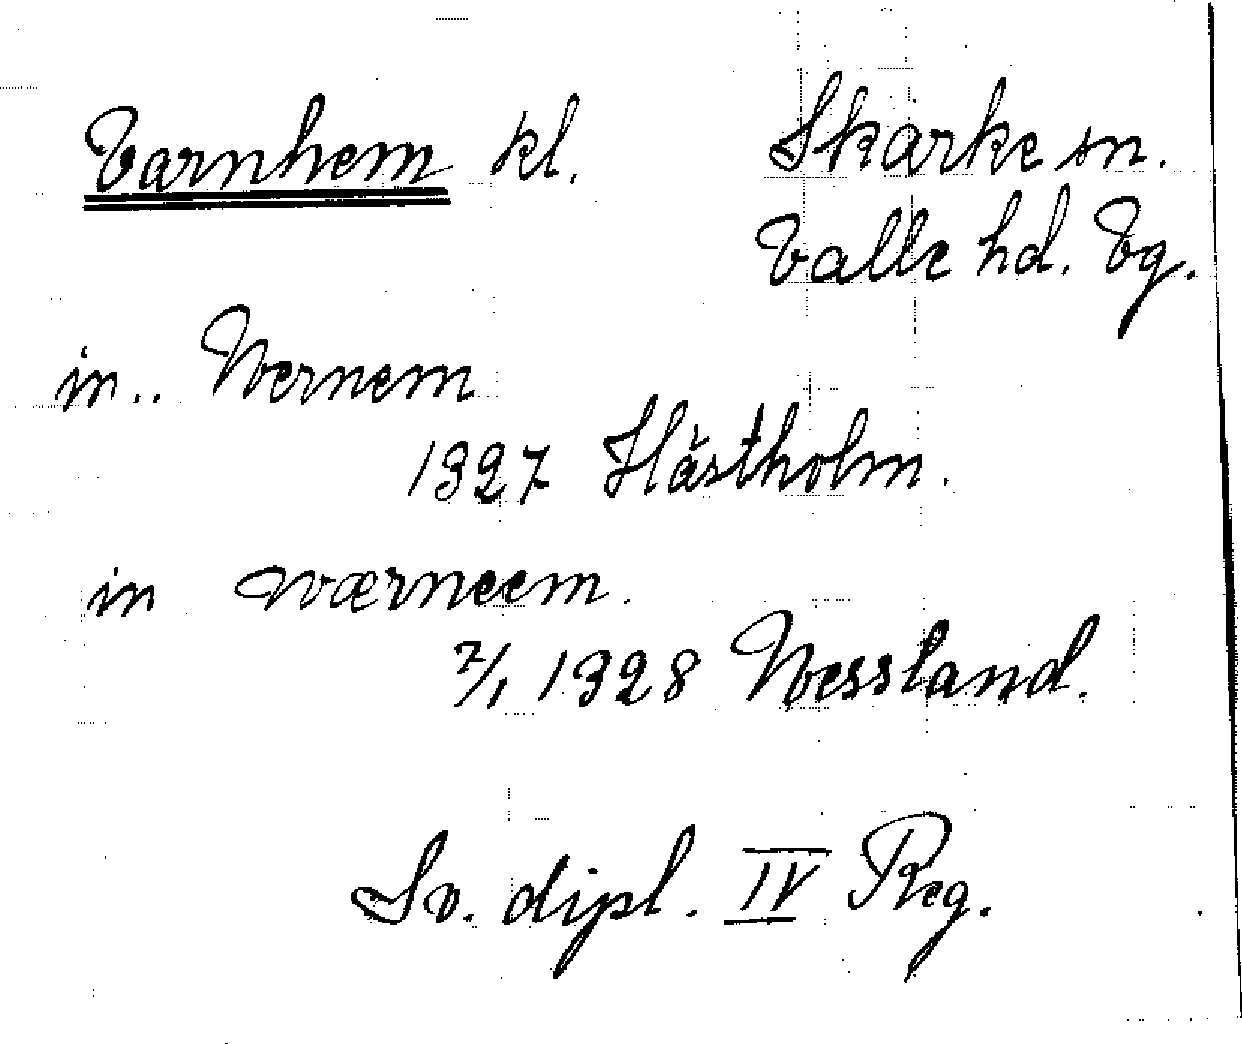 Varnhem kl. Skarke sn.
Valle hd. Vg.
in.. Wernem
1327 Hästholm.
in wærneem.
7/1 1328 Wessland.
Sv. dipl. IV Reg.